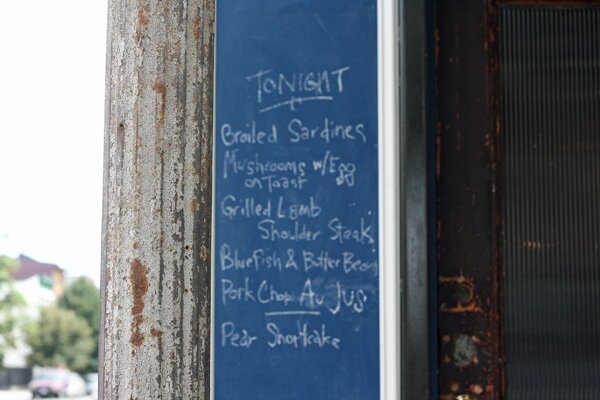 TONIGHT
Broiled Sardines
Mushrooms w/Egg
on Toast
Grilled Lamb
Shoulder Steak
Bluefish & Butter Beans
Pork Chop Au Jus
Pear Shortcake